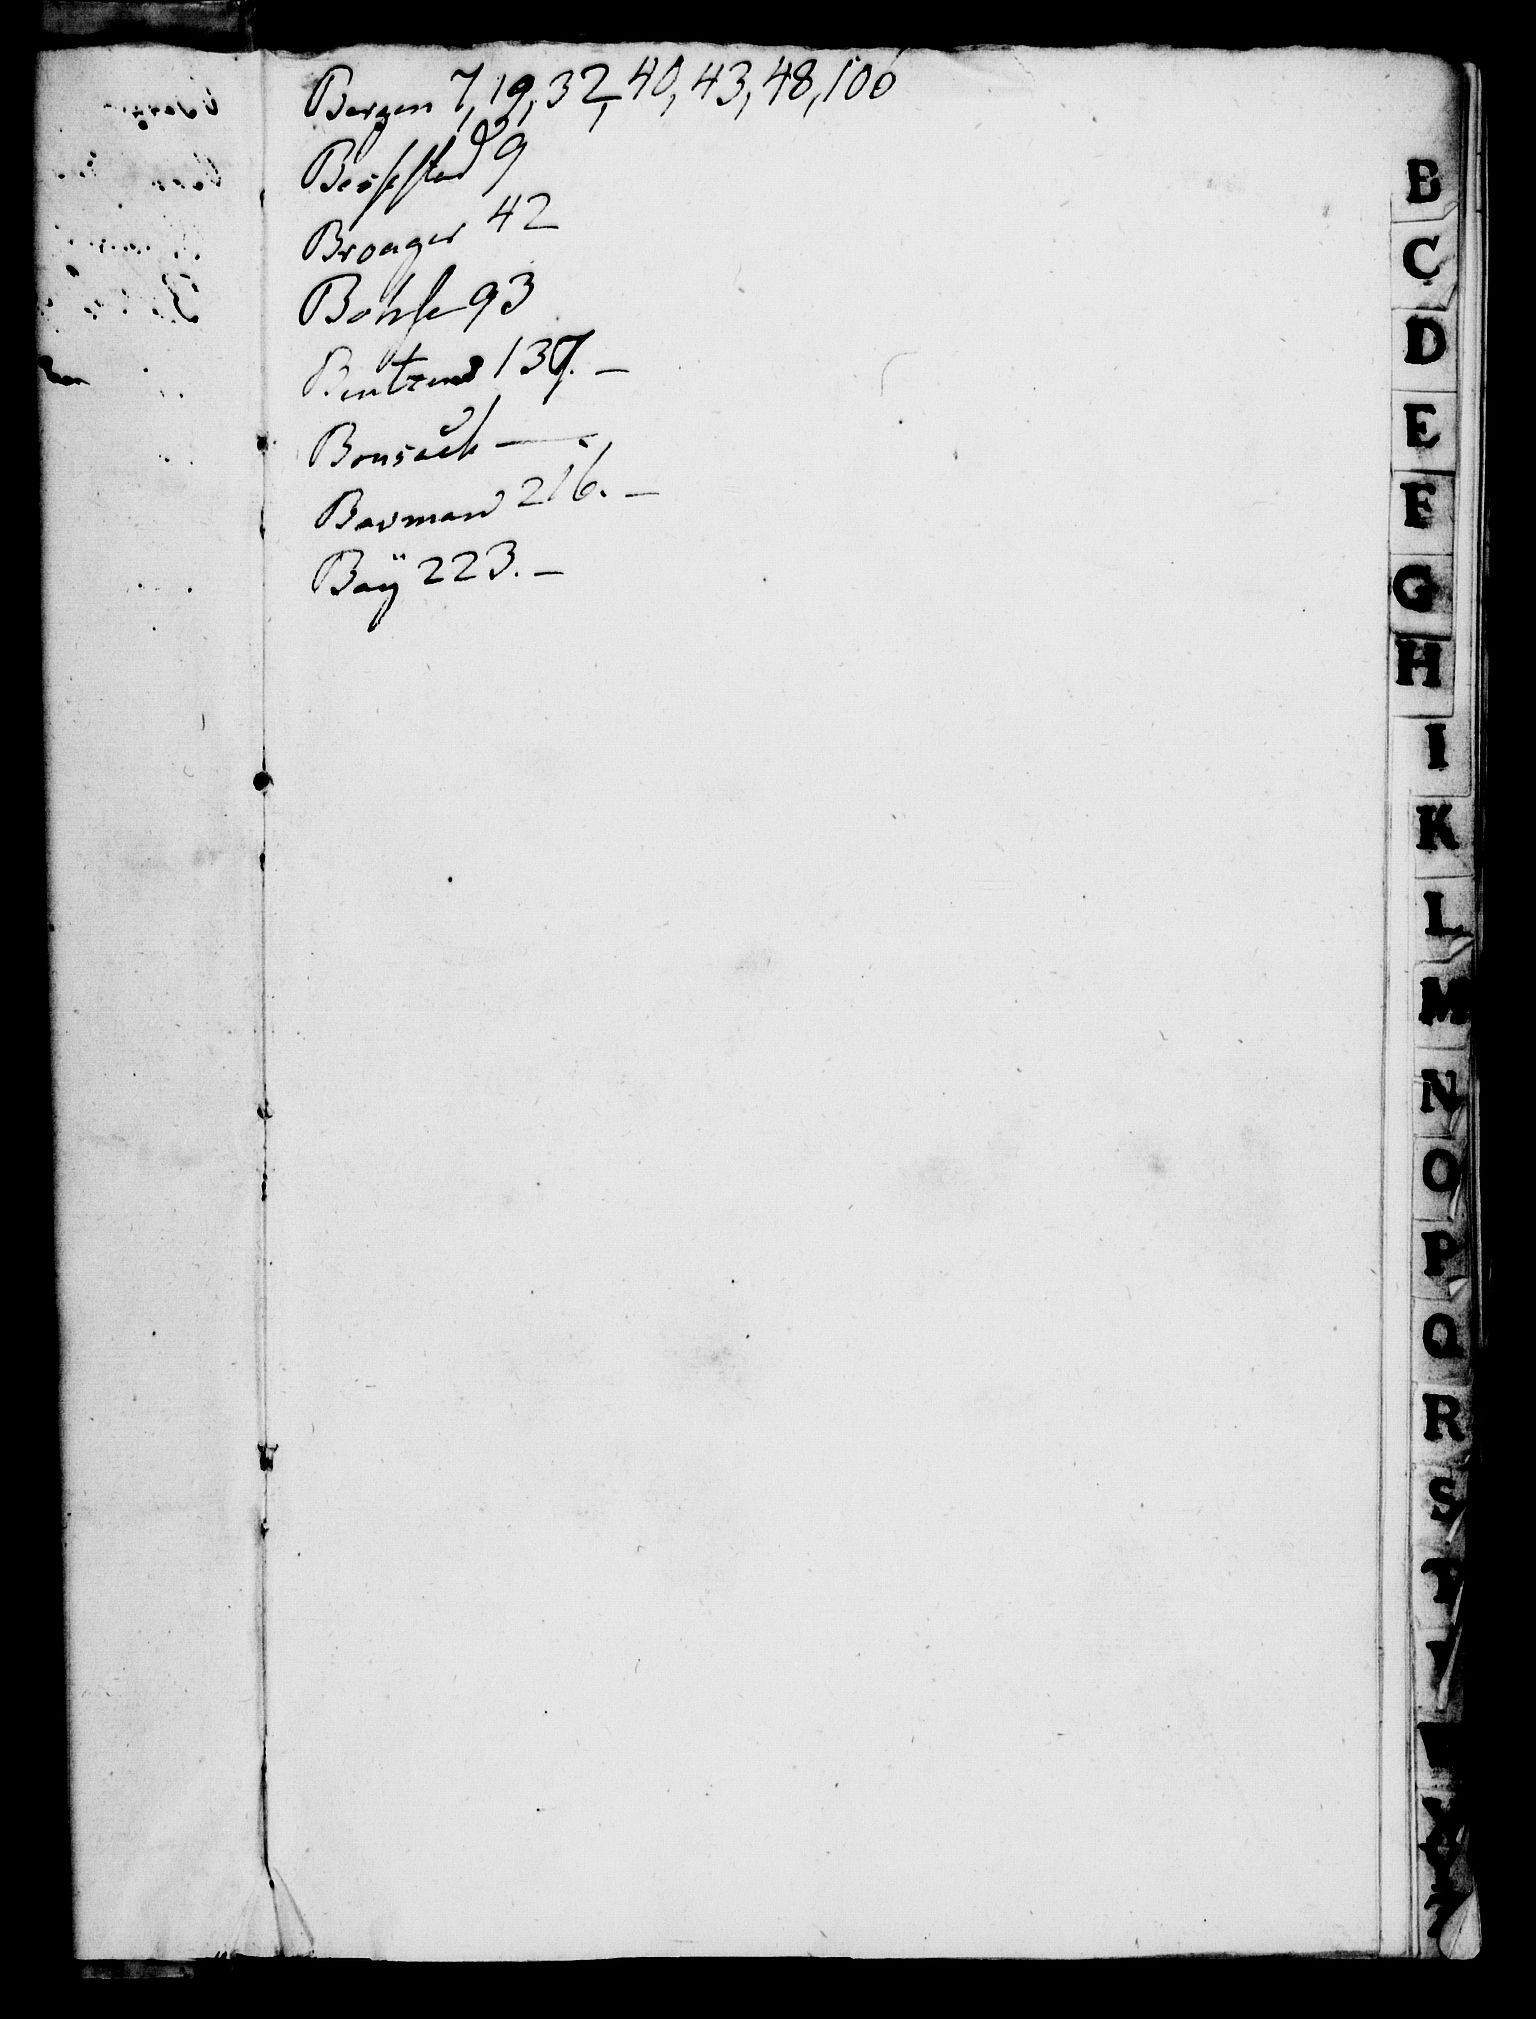 Bergen 7, 19, 32, 40, 43, 48, 106
Beshstad 9
Broager 42
Bohse 93
Bentzens 137. —
Bonsach —
Bauman 216. —
Baÿ 223. —
B
C
D
E
F
G
H
I
K
L
M
N
O
P
Q
R
S
T